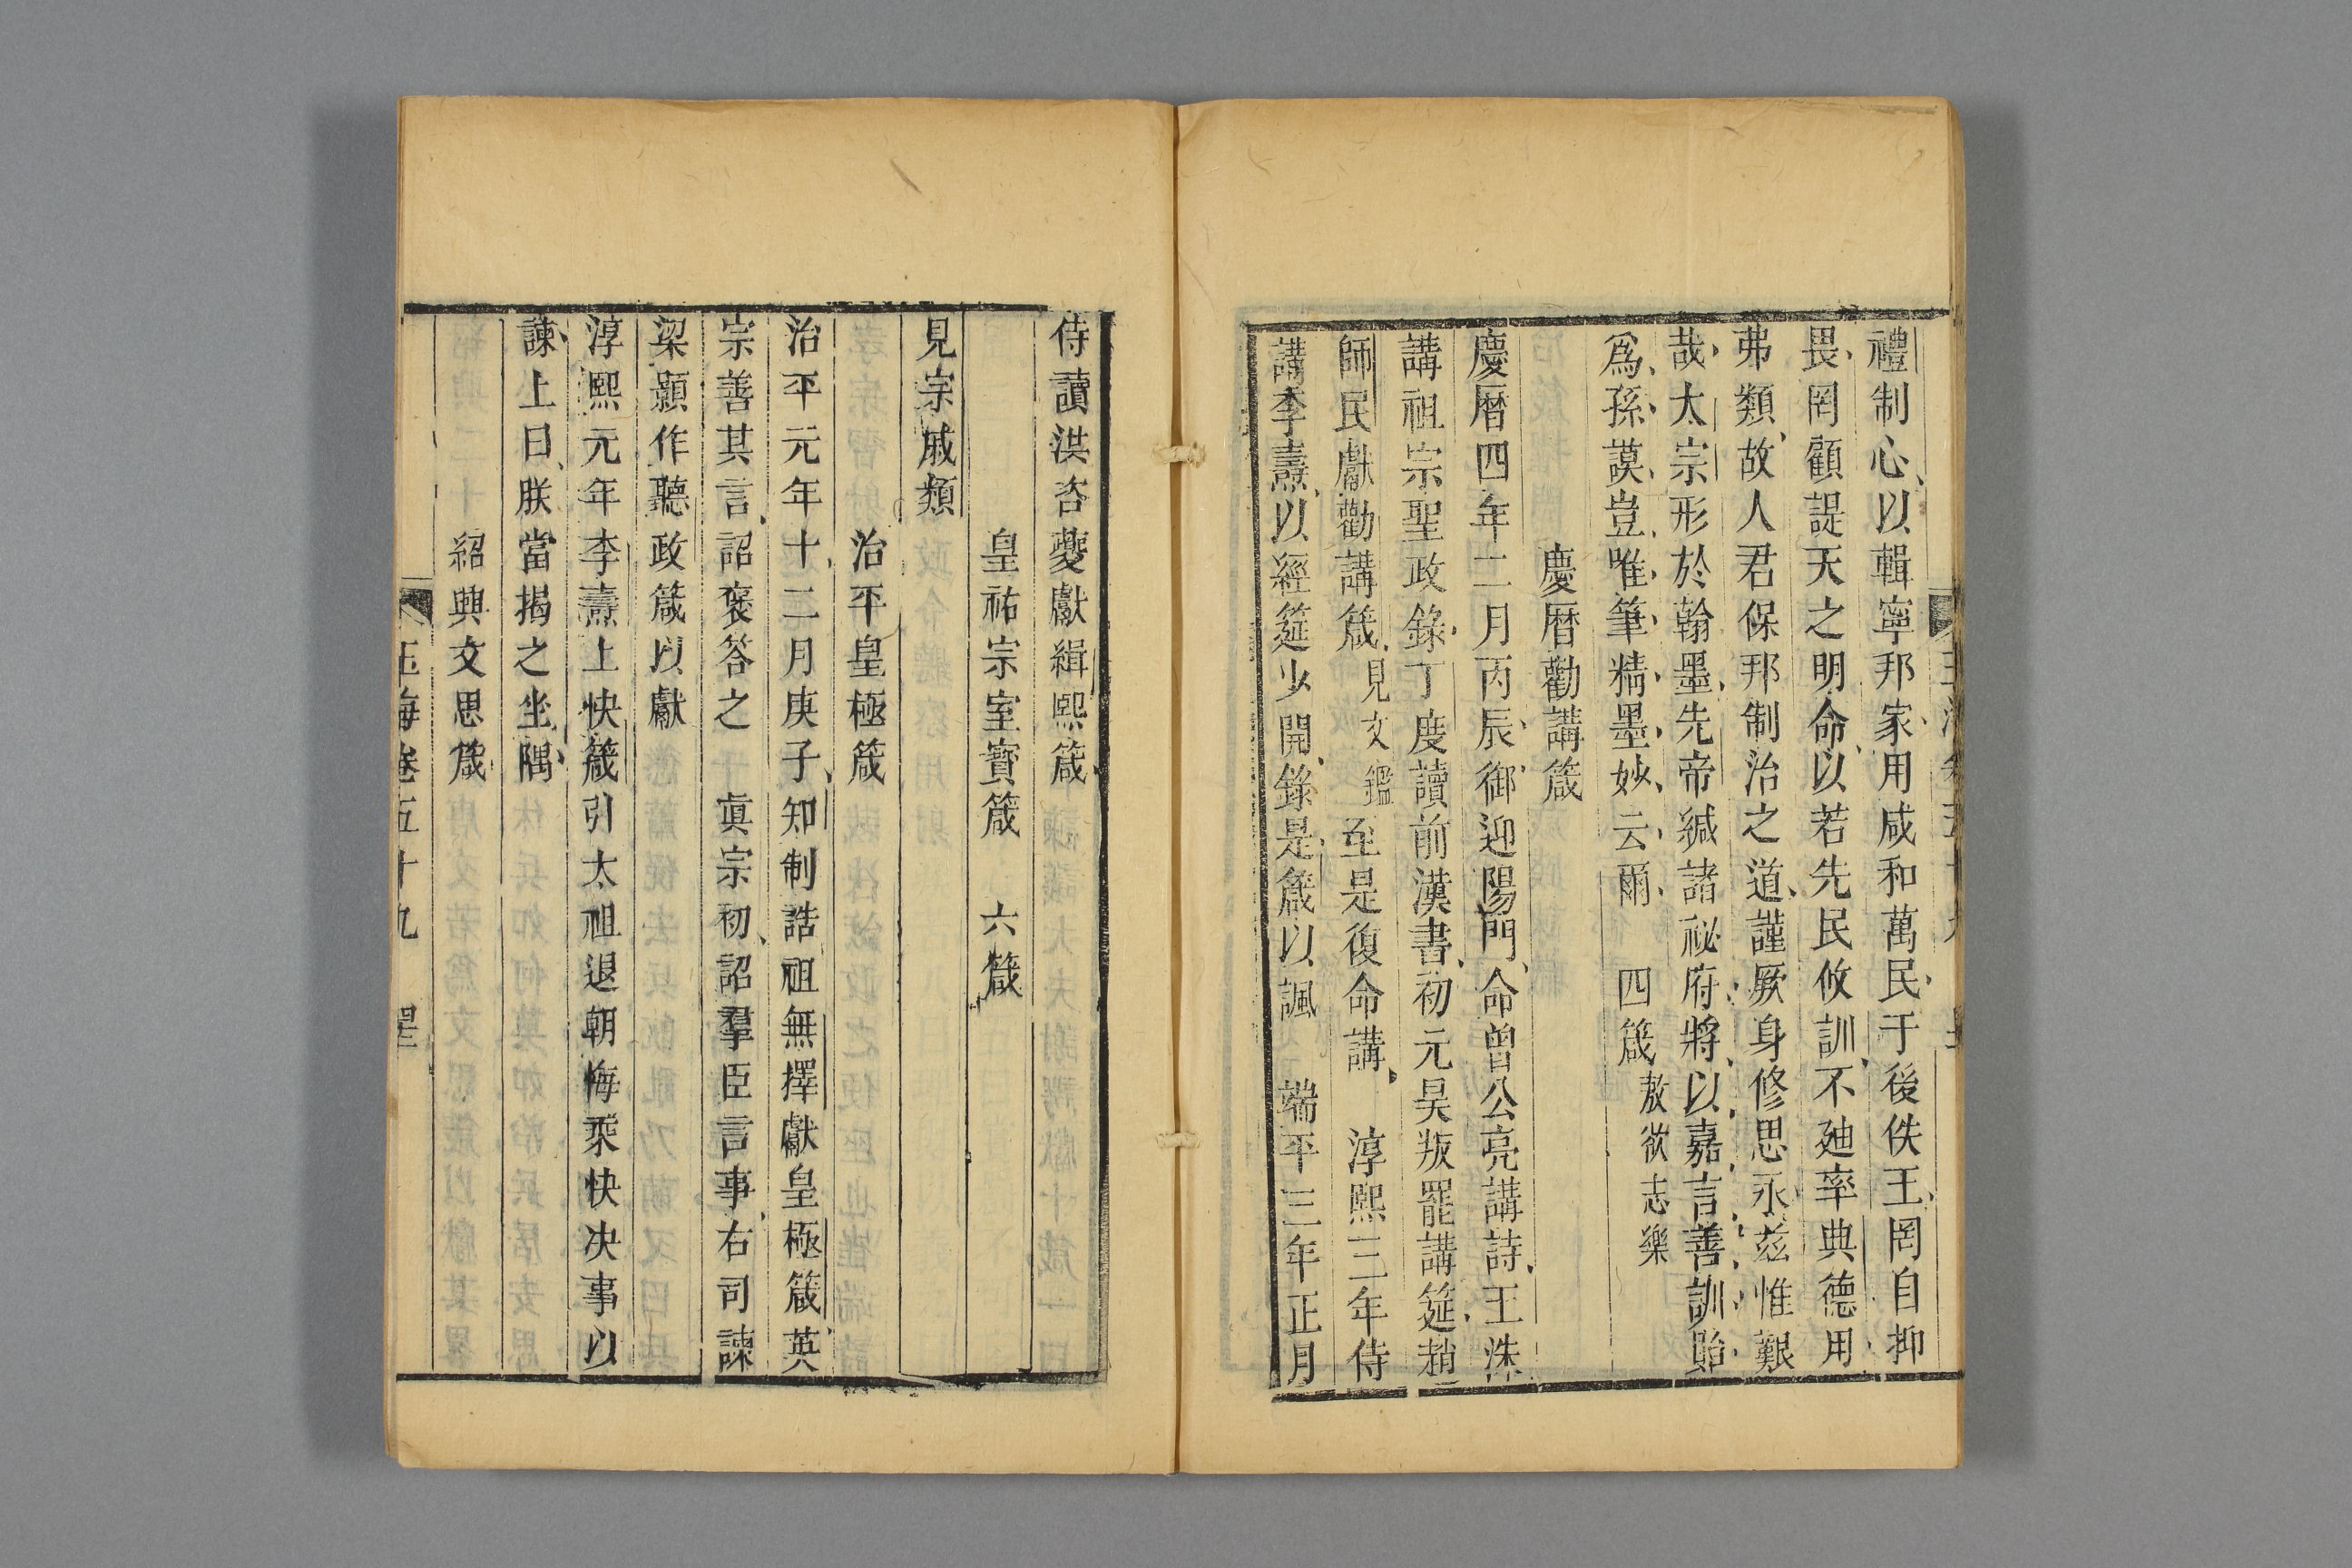 禮制心以輯寧邦家用咸和萬民于後佚王罔自抑
畏罔顧諟天之明命以若先民攸訓不廸率典德用
弗類故人君保邦制治之道謹厥身修思永兹惟艱
哉太宗形於翰墨先帝緘諸祕府將以嘉言善訓貽
爲孫謨豈唯筆精墨妙云爾 四箴敖欲志樂
慶曆勸講箴
慶曆四年二月丙辰御迎陽門命曾公亮講詩王洙
講祖宗聖政錄丁度讀前漢書初元昊叛罷講筵趙
師民獻勸講箴見文鑑至是復命講 淳熙三年侍
講李燾以經筵少開錄是箴以諷 端平三年正月
侍讀洪咨夔獻緝熙箴
皇祐宗室寶箴 六箴
見宗戚類
治平皇極箴
治平元年十二月庚子知制誥祖無擇獻皇極箴英
宗善其言詔褒答之 眞宗初詔羣臣言事右司諫
梁顥作聽政箴以獻
淳熙元年李燾上快箴引太祖退朝悔乘快决事以
諫上曰朕當揭之坐隅
紹興文思箴
玉海卷五十九